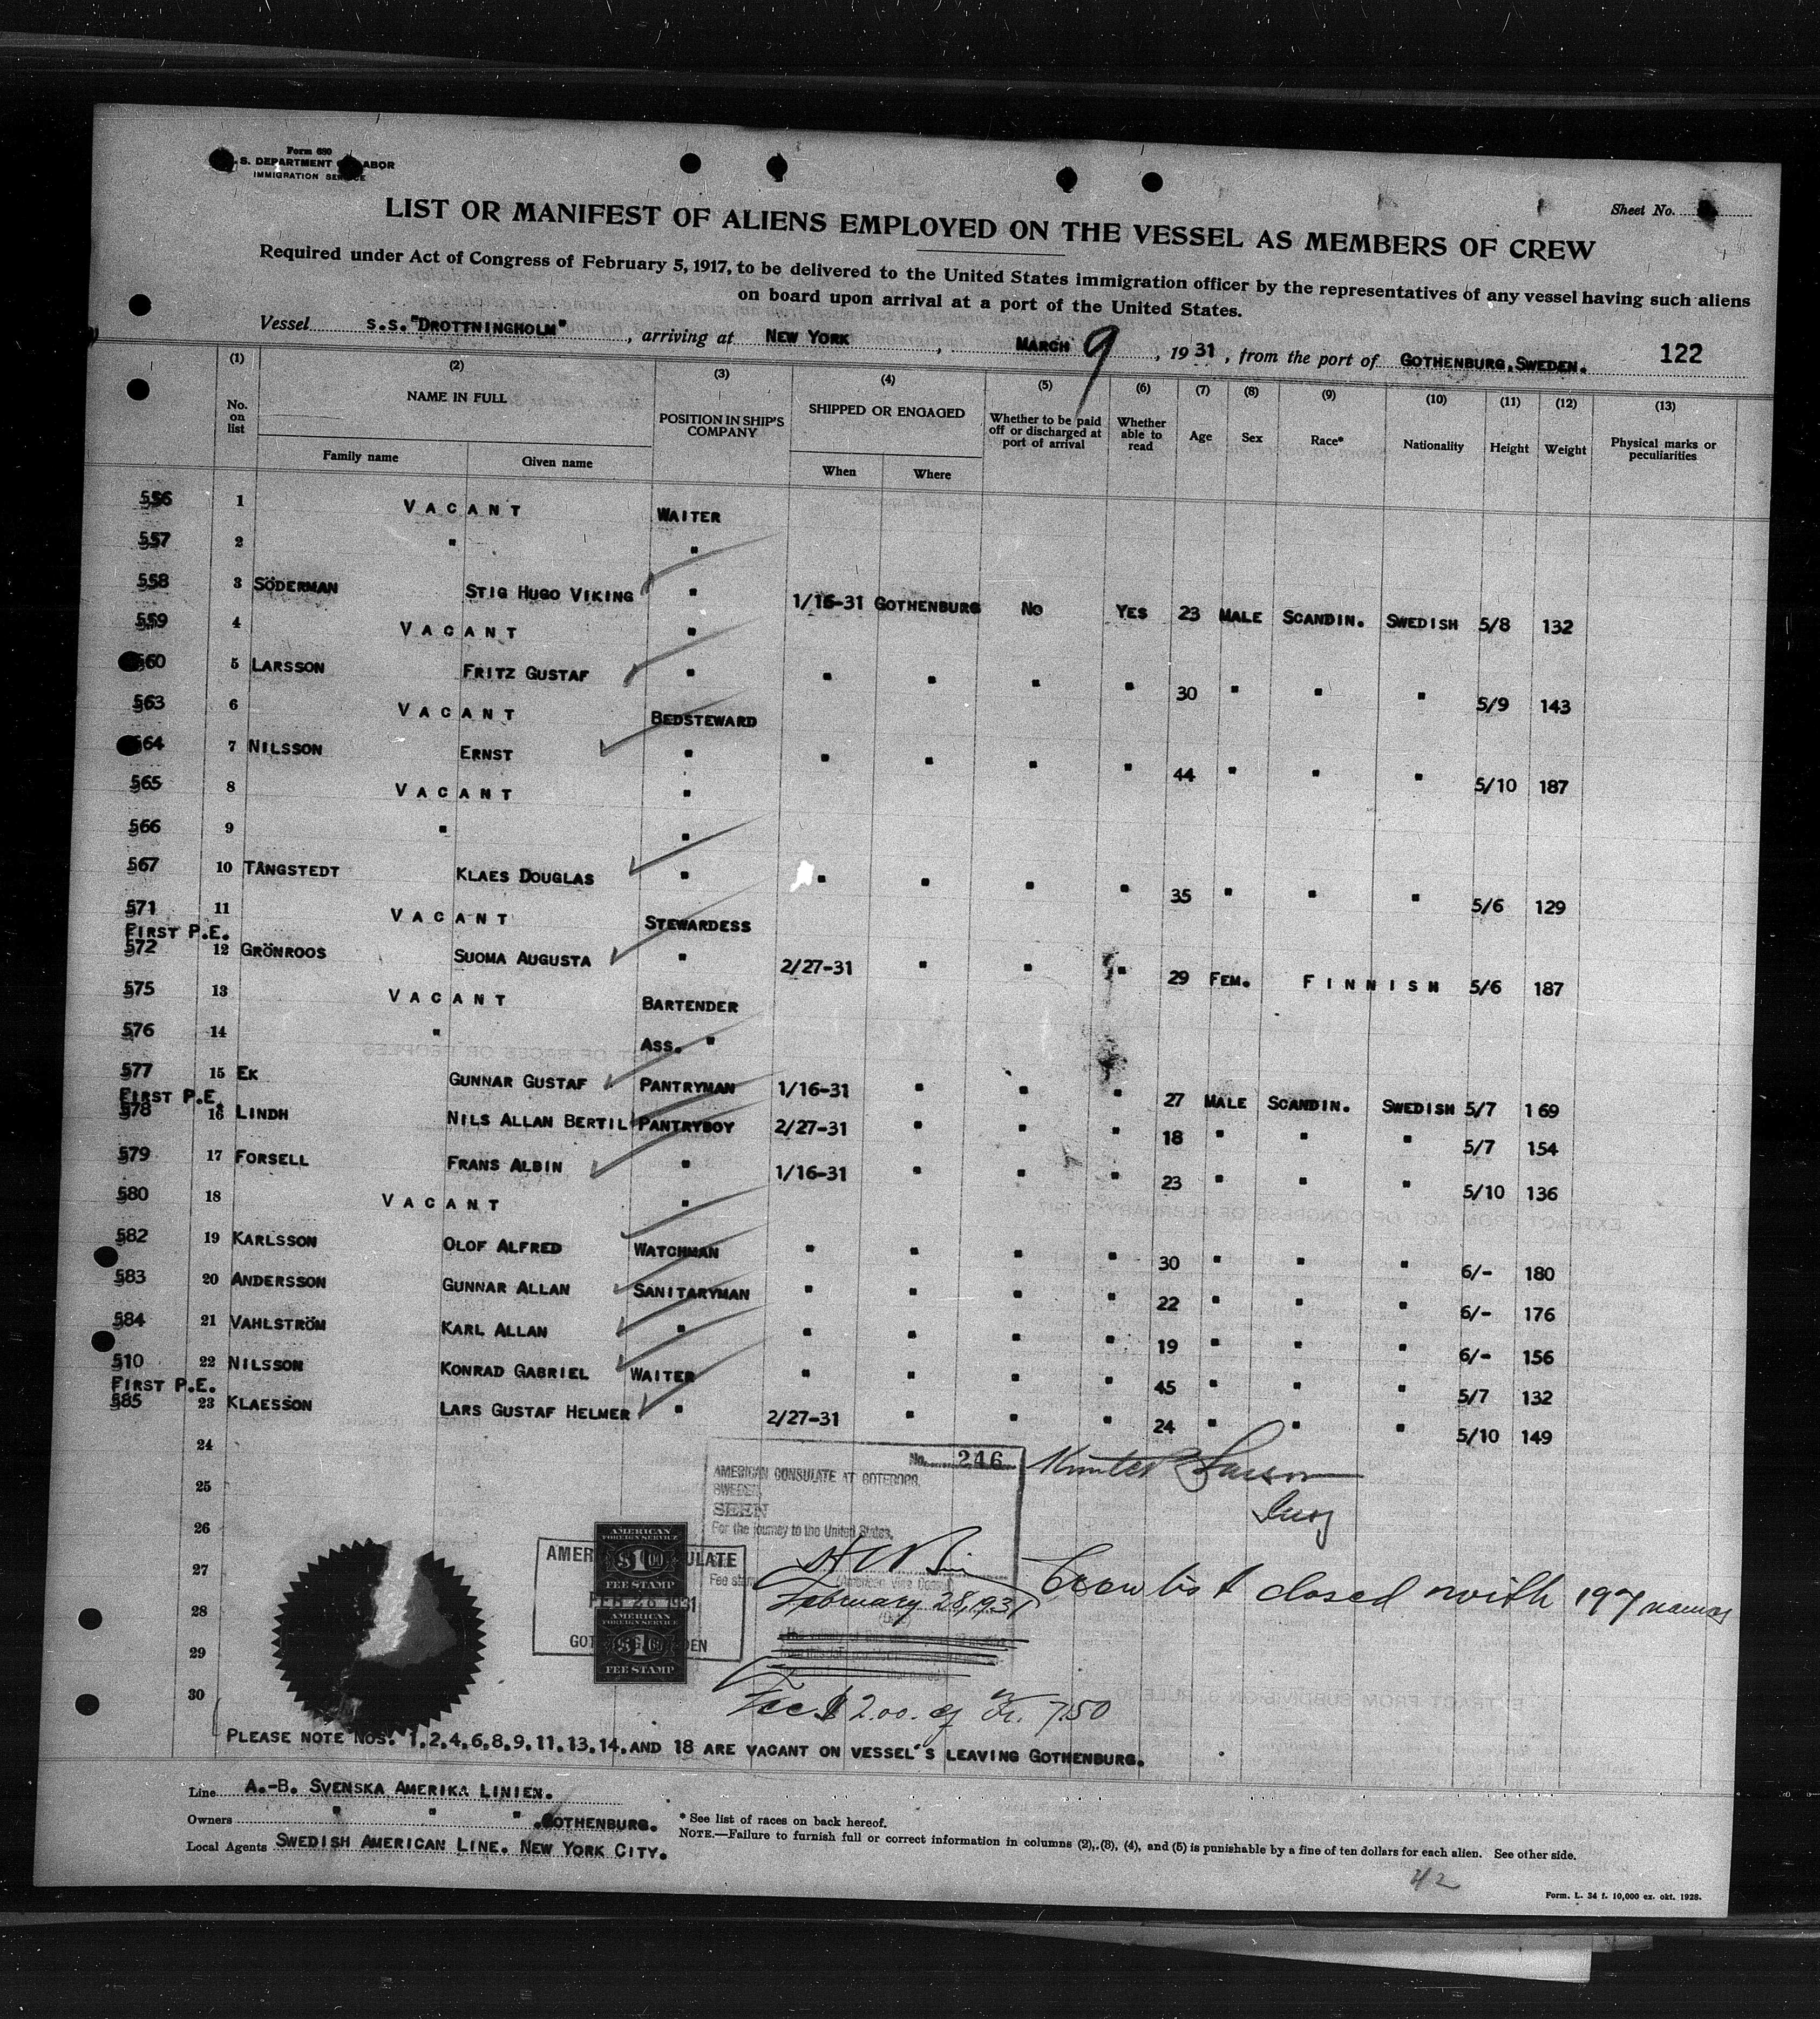 Form 680
S. DEPARTMENT LABOR
IMMIGRATION SERVICE
Sheet No.
LIST OR MANIFEST OF ALIENS EMPLOYED ON THE VESSEL AS MEMBERS OF CREW
Required under Act of Congress of February 5, 1917, to be delivered to the United States immigration officer by the representatives of any vessel having such aliens
on board upon arrival at a port of the United States.
Vessel S.S. "DROTTNINGHOLM", arriving at NEW YORK, MARCH 9, 1931, from the port of GOTHENBURG, SWEDEN. 122
(1) (2) (3) (4) (5) (6) (7) (8) (9) (10) (11) (12) (13)
No. on list NAME IN FULL POSITION IN SHIP'S COMPANY SHIPPED OR ENGAGED Whether to be paid off or discharged at port of arrival Whether able to read Age Sex Race* Nationality Height Weight Physical marks or peculiarities
Family name Given name When Where
556 1 VACANT WAITER
557 2 " "
558 3 SÖDERMAN STIG HUGO VIKING " 1/16-31 GOTHENBURG NO YES 23 MALE SCANDIN. SWEDISH 5/8 132
559 4 VACANT "
560 5 LARSSON FRITZ GUSTAF " " " " " 30 " " " 5/9 143
563 6 VACANT BEDSTEWARD
564 7 NILSSON ERNST " " " " " 44 " " " 5/10 187
565 8 VACANT "
566 9 " "
567 10 TÅNGSTEDT KLAES DOUGLAS " " " " " 35 " " " 5/6 129
571 11 VACANT STEWARDESS
FIRST P.E.
572 12 GRÖNROOS SUOMA AUGUSTA " 2/27-31 " " " 29 FEM. FINNISH 5/6 187
575 13 VACANT BARTENDER
576 14 " ASS. "
577 15 EK GUNNAR GUSTAF PANTRYMAN 1/16-31 " " " 27 MALE SCANDIN. SWEDISH 5/7 169
FIRST P.E.
578 16 LINDH NILS ALLAN BERTIL PANTRYBOY 2/27-31 " " " 18 " " " 5/7 154
579 17 FORSELL FRANS ALBIN " 1/16-31 " " " 23 " " " 5/10 136
580 18 VACANT "
582 19 KARLSSON OLOF ALFRED WATCHMAN " " " " 30 " " " 6/- 180
583 20 ANDERSSON GUNNAR ALLAN SANITARYMAN " " " " 22 " " " 6/- 176
584 21 VAHLSTRÖM KARL ALLAN " " " " " 19 " " " 6/- 156
510 22 NILSSON KONRAD GABRIEL WAITER " " " " 45 " " " 5/7 132
FIRST P.E.
585 23 KLAESSON LARS GUSTAF HELMER " 2/27-31 " " " 24 " " " 5/10 149
24
25
26
27
28
29
30
No. 246
AMERICAN CONSULATE AT GOTEBORG,
SWEDEN
SEEN
For the journey to the United States,
(American Vice Consul)
February 28, 1931
Fee stamp
Fee $2.00. = Kr. 7.50
AMERICAN FOREIGN SERVICE
$1.00
FEE STAMP
AMERICAN FOREIGN SERVICE
$1.00
FEE STAMP
AMER ULATE
FEB 28 1931
GOT G DEN
Larson
Crew list closed with 197 names
PLEASE NOTE NOS. 1,2,4,6,8,9,11,13,14, AND 18 ARE VACANT ON VESSEL'S LEAVING GOTHENBURG.
Line A.-B. SVENSKA AMERIKA LINIEN.
Owners " " " , GOTHENBURG.
Local Agents SWEDISH AMERICAN LINE. NEW YORK CITY.
* See list of races on back hereof.
NOTE.—Failure to furnish full or correct information in columns (2), (3), (4), and (5) is punishable by a fine of ten dollars for each alien. See other side.
42
Form. L. 34 f. 10,000 ex. okt. 1928.